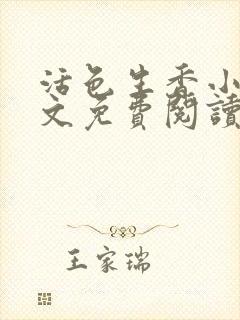 活色生香小
文免費閱讀
王家瑞